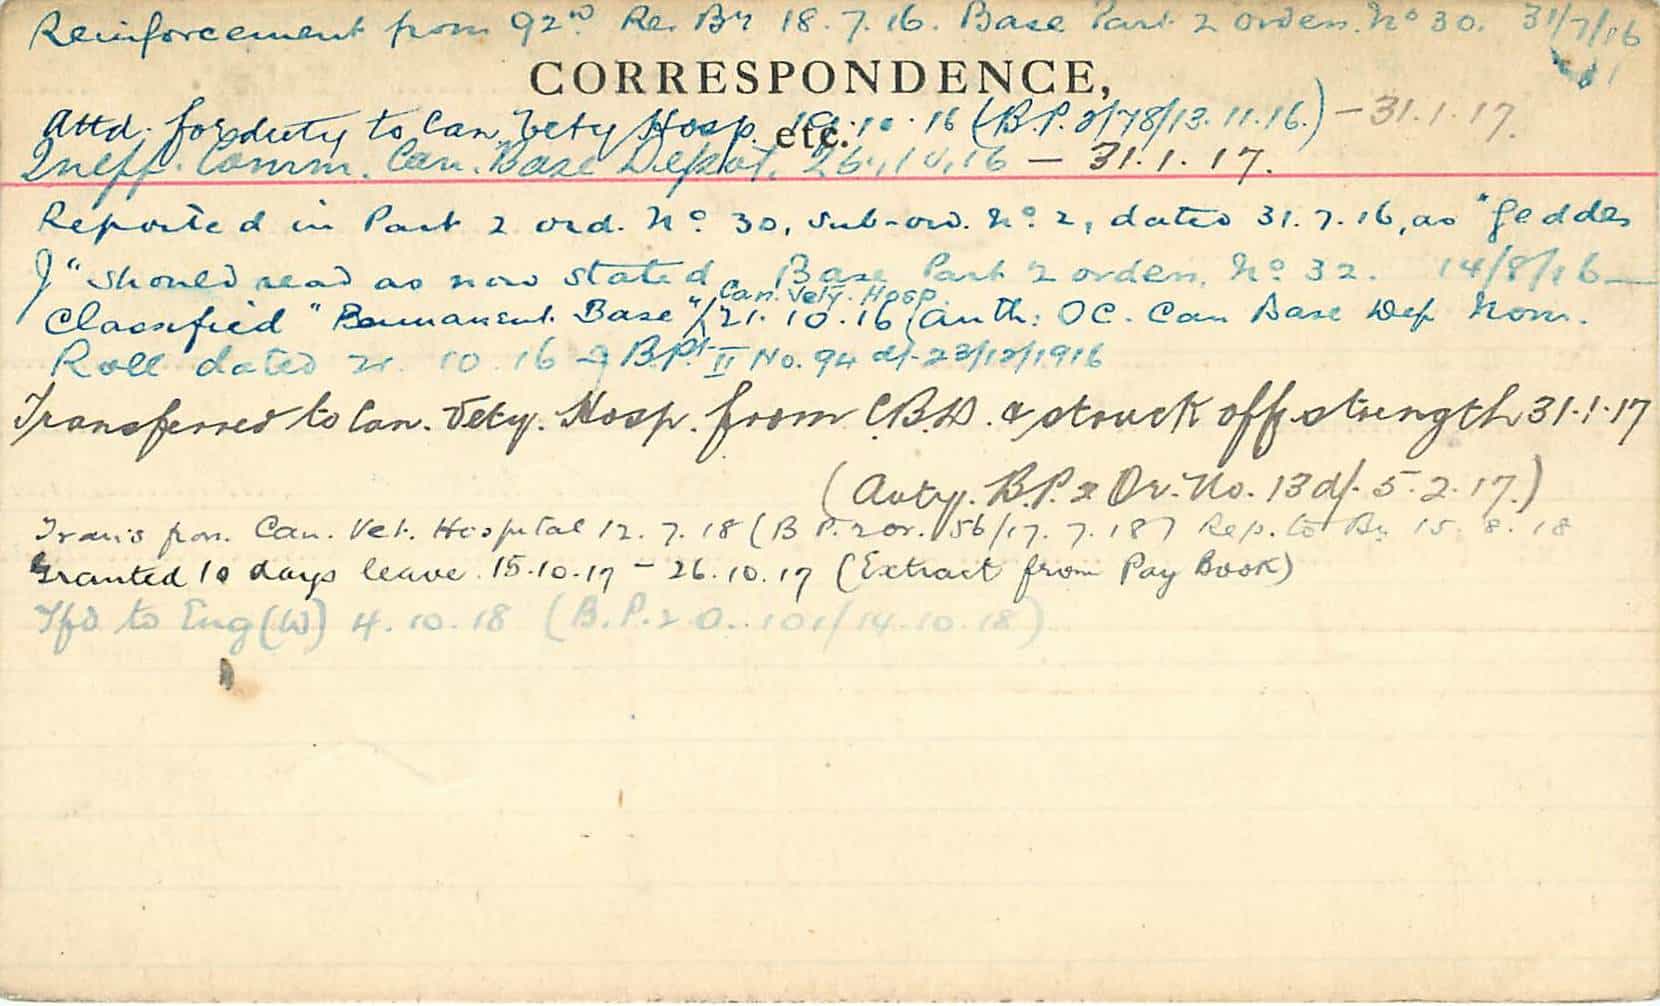 Reinforcement from 92nd Re. Bn 18.7.16. Base Part 2 orders. No 30. 31/7/16
CORRESPONDENCE,
Attd. for duty to Can. Vety Hosp. 10.16 (B.P. 2/78/13.11.16.) - 31.1.17.
etc.
Ineff. Comm. Can. Base Depot. 26.10.16 - 31.1.17.
Reported in Part 2 ord. No. 30, sub-ord. No. 2, dated 31.7.16, as "Geddes
J" should read as now stated Base Part 2 orders. No. 32. 14/8/16 -
Can. Vety. Hosp.
Classified "Permanent Base" / 21.10.16 (Auth: OC. Can Base Dep Nom.
Roll dated 21.10.16 & B.Pt II No. 94 d/- 23/12/1916
Transferred to Can. Vety. Hosp. from C.B.D. & struck off strength 31.1.17
(Auty. B.P. 2 Or. No. 13 d/- 5.2.17.)
Trans from. Can. Vet. Hospital 12.7.18 (B P. 2 or. 56/17.7.18) Rep. to Bn 15.8.18
Granted 10 days leave 15.10.17 - 26.10.17 (Extract from Pay Book)
Tfd to Eng (W) 4.10.18 (B.P. 2 O. 101/14.10.18)